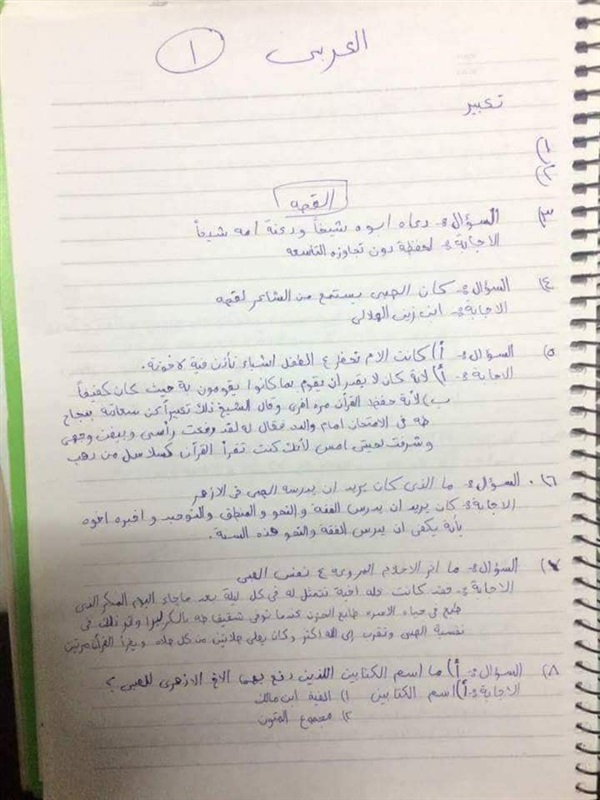 العربى
١
تعبير
١)
٢)
القصه
٣) السؤال :- دعاه ابوه شيخاً ودعتة امه شيخاً
الاجابة :- لحفظة دون تجاوزه التاسعه
٤) السؤال :- كان الصبى يستمع من الشاعر لقصه
الاجابة :- ابى زيد الهلالى
٥) السؤال :- أ) كانت الام تحظر ع الطفل اشياء تأذن فية لاخوتة.
الاجابة :- أ) لانة كان لا يقدر ان يقوم بما كانوا يقومون بة حيث كان كفيفاً
ب) لانة حفظ القرآن مره اخرى وقال الشيخ ذلك تعبيراً عن سعادتة بنجاح
طه فى الامتحان امام والده فقال له لقد رفعت رأسى وبيضت وجهى
وشرفت لحيتى امس لأنك كنت تقرأ القرآن كسلاسل من ذهب
٦) السؤال :- ما الذى كان يريد ان يدرسة الصبى فى الازهر
الاجابة :- كان يريد ان يدرس الفقة والنحو والمنطق والتوحيد واخبره اخوه
بأنة يكفى ان يدرس الفقة والنحو هذه السنة.
٧) السؤال :- ما اثر الاحلام المروعه ع نفس الصبى
الاجابة :- فقد كانت علة اخية تتمثل له فى كل ليلة بعد ماجاء اليوم المنكر الذى
طبع فى حياه الاسره طابع الحزن عندما توفى شقيق طه بالكوليرا واثر ذلك فى
نفسية الصبى وتقرب إلى الله اكثر وكان يصلى صلاتين من كل صلاه ويقرأ القرآن مرتين
٨) السؤال :- أ) ما اسم الكتابين اللذين دفع بهما الاخ الازهرى للصبى ؟
الاجابة :- أ) اسم الكتابين ١) الفية ابن مالك
٢) مجموع المتون